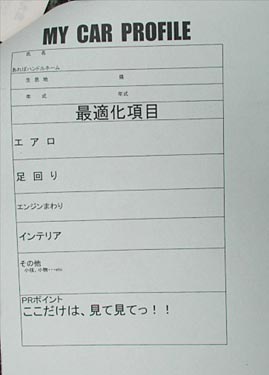 MY CAR PROFILE
氏 名
あればハンドルネーム
生息地 県
年 式 年式
最適化項目
エアロ
足回り
エンジンまわり
インテリア
その他
小技、小物・・・etc
PRポイント
ここだけは、見て見てっ!!